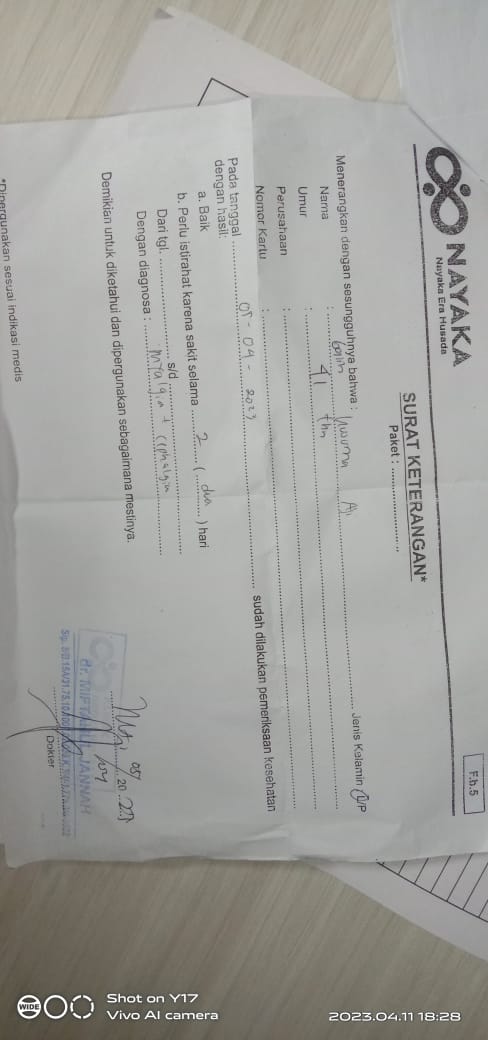 NAYAKA
Nayaka Era Husada
F.h.5
SURAT KETERANGAN*
Paket : ....................
Menerangkan dengan sesungguhnya bahwa :
Nama : Galih Kusuma A. Jenis Kelamin L/P
Umur : 41 thn
Perusahaan :
Nomor Kartu :
Pada tanggal 05 - 04 - 2023 sudah dilakukan pemeriksaan kesehatan
dengan hasil:
a. Baik
b. Perlu istirahat karena sakit selama 2 ( dua ) hari
Dari tgl. .................... s/d ....................
Dengan diagnosa : myalgia + cephalgia
Demikian untuk diketahui dan dipergunakan sebagaimana mestinya.
20 23
dr. MIFTAHUL JANNAH
Dokter
*Dipergunakan sesuai indikasi medis
WIDE
Shot on Y17
Vivo AI camera
2023.04.11 18:28